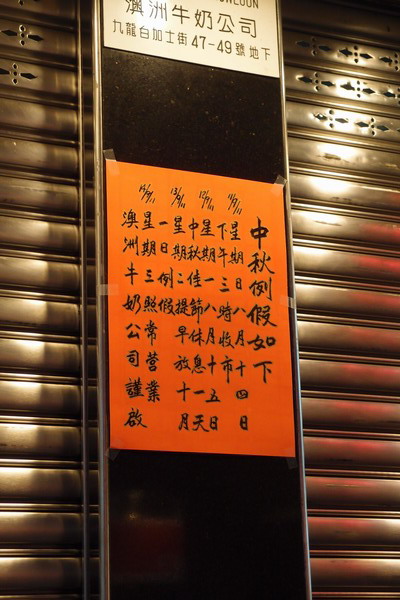 澳洲牛奶公司
九龍白加士街47-49號地下
中秋例假如下
11/9/11
星期日八月十四日
下午三時收市
12/9/11
星期一八月十五日
中秋佳節休息一天
13/9/11
星期二提早放十月
一日例假
14/9/11
星期三照常營業
澳洲牛奶公司謹啟